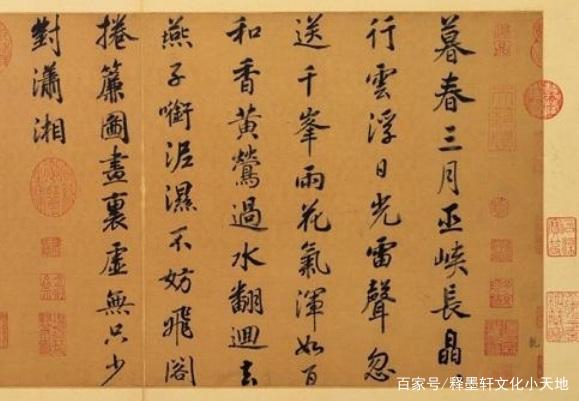 暮春三月巫峽長晶〻
行雲浮日光雷聲忽
送千峯雨花氣渾如百
和香黃鶯過水翻迴去
燕子銜泥濕不妨飛閣
捲簾圖畫裏虛無只少
對瀟湘
百家号/释墨轩文化小天地